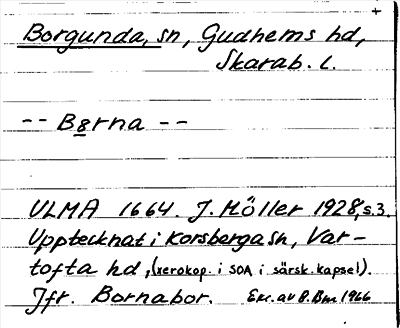 +
Borgunda, sn, Gudhems hd,
Skarab. l.
-- B8rna --
ULMA 1664. J. Möller 1928, s.3.
Upptecknat i Korsberga sn, Var-
tofta hd, (xerokop. i SOA i särsk. kapsel).
Jfr. Bornabor. Exc. av B. Bm 1966